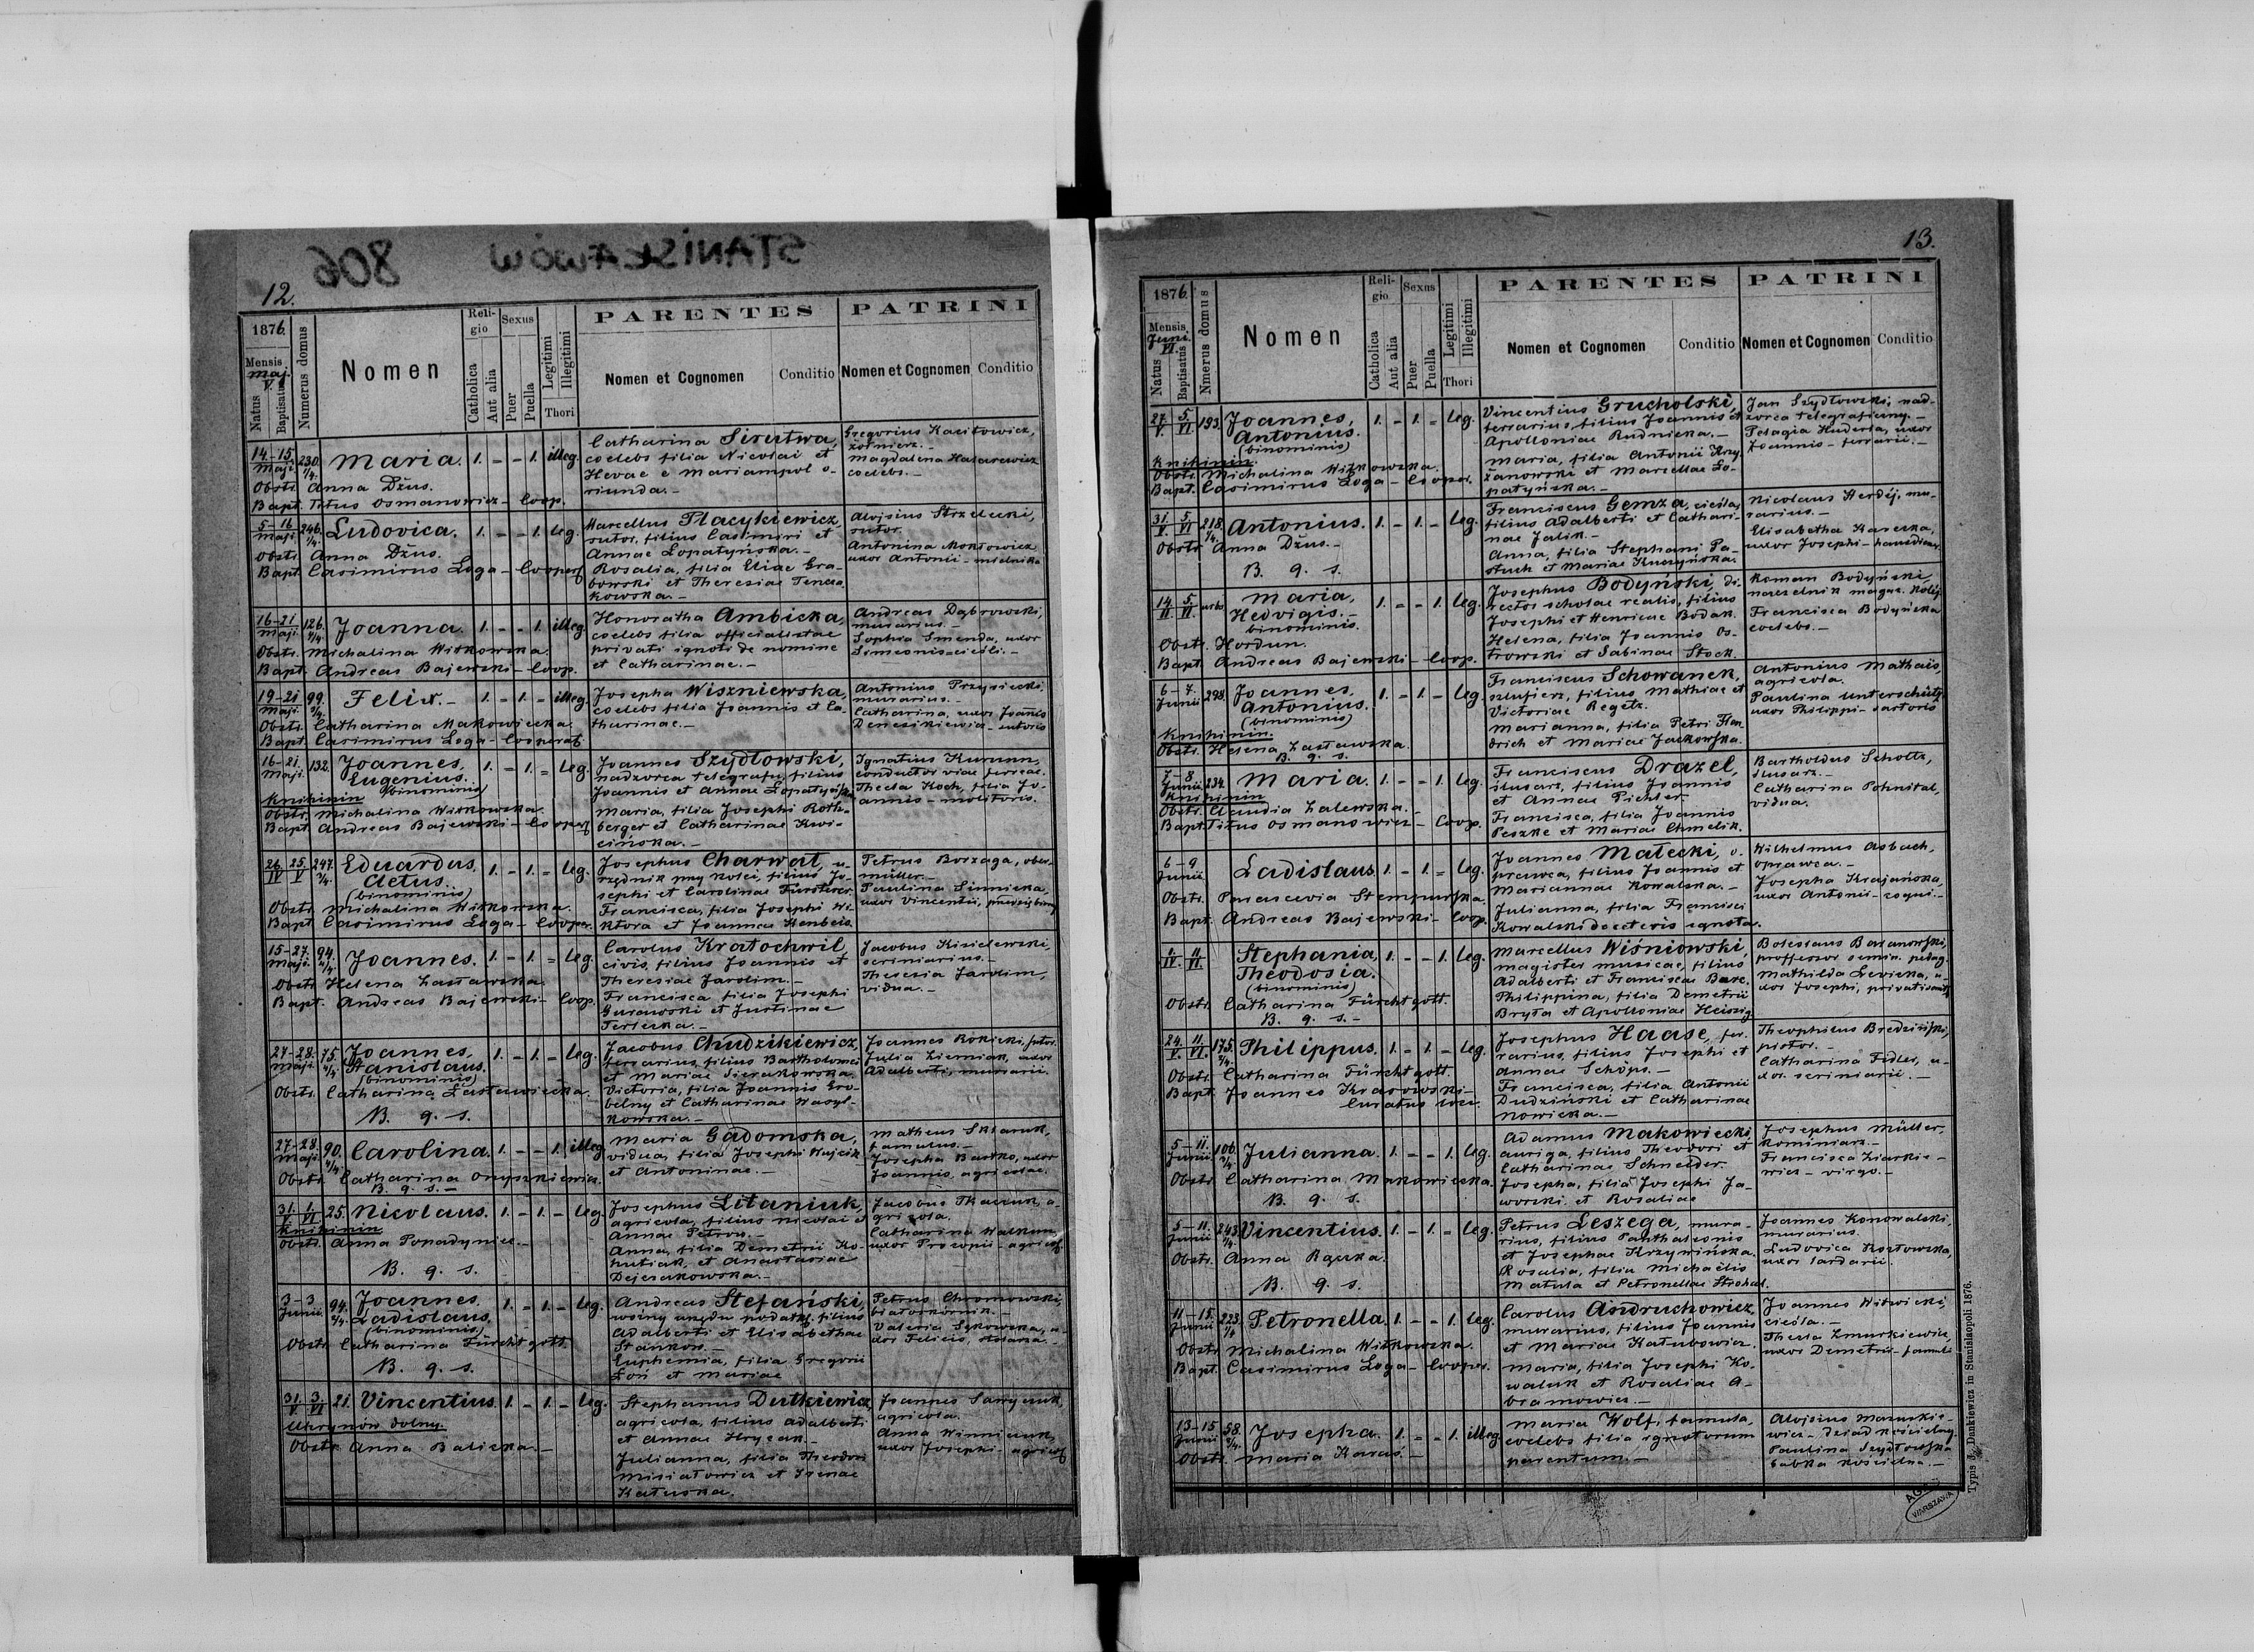 806 STANISŁAWÓW
12.
1876.
Mensis
Maj.
V.
Natus
Baptisatus
Numerus domus
Nomen
Religio
Catholica
Aut alia
Sexus
Puer
Puella
Legitimi
Illegitimi
Thori
PARENTES
Nomen et Cognomen
Conditio
PATRINI
Nomen et Cognomen
Conditio
14-15 Maji 230. Maria. 1. - - 1. illeg.
Obstr. Anna Džus.
Bapt. Titus Osmanowicz - Coop.
Catharina Sirutwa,
coelebs filia Nicolai et
Hevae e Mariampol o-
riunda.-
Gregorius Kacitowicz,
żołnierz.-
Magdalena Hazarewicz
coelebs.-
5-16 Maji. 246. Ludovica. 1. - - 1. leg.
Obstr. Anna Džus.
Bapt. Casimirus Loga - Cooper
Marcellus Placykiewicz,
sutor, filius Casimiri et
Annae Łopatyńska.-
Rosalia, filia Eliae Gra-
bowski et Theresiae Tencza
kowska.-
Aloisius Strzelecki,
sutor.
Antonina Mokłowicz
uxor Antonii - mielnika
16-21 Maji. 126. Joanna. 1. - - 1. illeg.
Obstr. Michalina Witkowska.
Bapt. Andreas Bajewski - Coop.
Honoratha Ambicka,
coelebs filia officialistae
privati ignoti de nomine
et Catharinae.-
Andreas Dąbrowski,
murarius.-
Sophia Smenda, uxor
Simeonis - cieśli.-
19-21 Maji. 99. Felix.- 1. - 1. - illeg.
Obstr. Catharina Makowiecka.
Bapt. Casimirus Loga - Cooperat
Josepha Wiszniewska,
coelebs filia Joannis et Ca-
tharinae.-
Antonius Przysiecki,
murarius.-
Catharina, uxor Joannis
Demczikiewicz - sutoris
16-21. Maji. 132. Joannes, 1. - 1. - leg.
Eugenius.
(binominis)
Knihinin
Obstr. Michalina Witkowska.
Bapt. Andreas Bajewski - Cooper
Joannes Szydłowski,
nadzorca telegrafu, filius
Joannis et Annae Łopatyńska
Maria, filia Josephi Roth-
berger et Catharinae Kwi-
cińska.-
Ignatius Kurunn,
conductor viae ferreae.
Thecla Koch, filia Jo-
annis - molitoris.
26. IV 25. V 247. Eduardus, 1. - 1. - leg.
Cletus.
(binominis)
Obstr. Michalina Witkowska.
Bapt. Casimirus Loga - Cooper.
Josephus Charwat, u-
rzędnik przy kolei, filius Jo-
sephi et Carolinae Fürsterer
Francisca, filia Josephi Wi-
ktora et Joannae Henbela.
Petrus Borzaga, ober-
müller.-
Paulina Sinnicka,
uxor Vincentii,
15-27. Maji. 94. Joannes. 1. - 1. - leg.
Obstr. Helena Łastawska.
Bapt. Andreas Bajewski - Coop.
Carolus Kratochwil
civis, filius Joannis et
Theresiae Jarolim.-
Francisca filia Josephi
Gurawski et Justinae
Terlecka.-
Jacobus Kisielewski,
scriniarius.-
Theresia Jarolim
vidua.-
27-28. Maji. 75. Joannes, 1. - 1. - leg.
Stanislaus.
(binominis)
Obstr. Catharina Łastawiecka.
B. q. s.
Jacobus Chudzikiewicz,
ferrarius, filius Bartholomei
et Mariae Sierakowska.
Victoria, filia Joannis Gro-
belny et Catharinae Wasyl-
kowska.-
Joannes Rokicki,
Julia Ziemiak, uxor
Adalberti, murarii.
27-28. Maji. 90. Carolina. 1. - - 1. illeg.
Obstr. Catharina Onyszkiewicz.
B. q. s.-
Maria Gadomska,
vidua, filia Josephi Wujcik
et Antoninae.-
Matheus Sklaruk,
famulus.-
Josepha Bartko, uxor
Joannis, agricolae.
31. V. 1. VI 25. Nicolaus. 1. - 1. - leg.
Knihinin
Obstr. Anna Popadyniec.-
B. q. s.
Josephus Litaniuk,
agricola, filius Nicolai et
Annae Petrow.-
Anna, filia Demetrii Ko-
hutiak, et Anastasiae
Dejczakowska.-
Jacobus Tkaczuk, a-
gricola.
Catharina Walkun,
uxor Procopii - agricol
3-3. Junii. 94. Joannes, 1. - 1. - leg.
Ladislaus.
(binominis)
Obstr. Catharina Fürchtgott.
B. q. s.
Andreas Stefański,
woźny urzędu podatk. filius
Adalberti et Elisabethae
Stankow.-
Euphemia, filia Gregorii
Łoń et Mariae
Petrus Chromowski,
białoskórnik.-
Valeria Sękowska, u-
xor Felicis, stolarza.-
31. V 3. VI 21. Vincentius. 1. - 1. - leg.
Uhrynów dolny.
Obstr. Anna Baliczka.-
Stephanus Dutkiewicz,
agricola, filius Adalberti
et Annae Hrycak.-
Julianna, filia Theodori
Misiatowicz et Irenae
Katuska.
Joannes Sawczuk,
agricola.
Anna Winniczuk,
uxor Josephi - agricol
13.
1876.
Mensis
Juni.
VI.
Natus
Baptisatus
Nmerus domus
Nomen
Religio
Catholica
Aut alia
Sexus
Puer
Puella
Legitimi
Illegitimi
Thori
PARENTES
Nomen et Cognomen
Conditio
PATRINI
Nomen et Cognomen
Conditio
27. V. 5. VI. 193. Joannes, 1. - 1. - leg.
Antonius.
(binominis)
Knihinin.
Obstr. Michalina Witkowska.
Bapt. Casimirus Loga - Cooper.
Vincentius Grucholski,
ferrarius, filius Joannis et
Apolloniae Rudnicka.-
Maria, filia Antonii Krzy-
żanowski et Marcellae Ło-
patyńska.-
Jan Szydłowski, nad-
zorca telegraficzny.-
Pelagia Huderla, uxor
Joannis - ferrarii.-
31. V. 5. VI 218. Antonius. 1. - 1. - leg.
Obstr. Anna Džus.-
B. q. s.
Franciscus Gemza, cieśla,
filius Adalberti et Cathari-
nae Jalik.-
Anna, filia Stephani Pa-
stuch et Mariae Kuczyńska.
Nicolaus Herdej, mu-
rarius.-
Elisabetha Karecka,
uxor Josephi - hausdiener
14. II. 5. VI. urbs Maria, 1. - - 1. leg.
Hedvigis.-
binominis.
Obstr. Hordun.
Bapt. Andreas Bajewski - Coop.
Josephus Bodyński, di-
rector scholae realis, filius
Josephi et Henricae Bodak.
Helena, filia Joannis Os-
trowski et Sabinae Stock.
Roman Bodyński,
naczelnik magaz. kolej.
Francisca Bodyńska
coelebs.-
6-7. Junii 298. Joannes, 1. - 1. - leg.
Antonius.
(binominis)
Knihinin.
Obstr. Helena Łastawska.
B. q. s.
Franciscus Schowanek,
szlufierz, filius Mathiae et
Victoriae Regetz.
Marianna, filia Petri Hen-
drich et Mariae Jackowska.
Antonius Mathais,
agricola.
Paulina Unterschütz,
uxor Philippi - sartoris
7-8 Junii 234. Maria. 1. - - 1. leg.
Knihinin
Obstr. Claudia Zalewska.-
Bapt. Titus Osmanowicz - Coop.
Franciscus Drazel,
ślusarz, filius Joannis
et Annae Pichler.
Francisca, filia Joannis
Peszke et Mariae Chmelik.
Bartholdus Scholtz,
ślusarz.-
Catharina Pohnstal,
vidua.
6-9 Junii Ladislaus. 1. - 1. - leg.
Obstr. Parascevia Stempurska.
Bapt. Andreas Bajewski - Coop.
Joannes Małecki, o-
prawca, filius Joannis et
Mariannae Kowalska.-
Julianna, filia Francisci
Kowalski de ceteris ignota.
Wilhelmus Asbach,
oprawca.-
Josepha Krajańska,
uxor Antonii - coqui.-
IV. 11. VI. Stephania, 1. - - 1. leg.
Theodosia.
(binominis)
Obstr. Catharina Fürchtgott.
B. q. s.-
Marcellus Wiśniowski,
magister musicae, filius
Adalberti et Francisca Barc.
Philippina, filia Demetrii
Bryła et Apolloniae Heissig
Boleslaus Baranowski,
proffessor semin. pedag.
Mathilda Levicka, u-
xor Josephi,
24. V. 11. VI. 175. Philippus. 1. - 1. - leg.
Obstr. Catharina Fürchtgott.
Bapt. Joannes Krasowski -
Curatus loci.
Josephus Haase, fer-
rarius, filius Josephi et
Annae Schöps.-
Francisca, filia Antonii
Dudziński et Catharinae
Nowicka.-
Theophilus Bredziński,
pistor.-
Catharina Fidler, u-
xor. scriniarii.-
5-11 Junii. 106. Julianna. 1. - - 1. leg.
Obstr. Catharina Makowiecka.
B. q. s.
Adamus Makowiecki,
auriga, filius Theodori et
Catharinae Schneider.
Josepha, filia Josephi Ja-
worski et Rosaliae
Josephus Müller,
kominiarz.-
Francisca Ziarkie-
wicz - virgo.-
5-11. Junii 243. Vincentius. 1. - 1. - leg.
Obstr. Anna Rączka.
B. q. s.
Petrus Leszega, mura-
rius, filius Panthaleonis
et Josephae Krzywińska.
Rosalia, filia Michaëlis
Matula et Petronellae Strohal.
Joannes Konowalski,
murarius.
Ludovica Kozłowska,
uxor lardarii.
11-15. Junii 223. Petronella. 1. - - 1. leg.
Obstr. Michalina Witkowska.
Bapt. Casimirus Loga - Cooper.
Carolus Andruchowicz,
murarius, filius Joannis
et Mariae Katubowicz.
Maria, filia Josephi Ko-
waluk et Rosaliae A-
bramowicz.-
Joannes Witwicki,
cieśla.-
Thecla Zmurkiewicz,
uxor Demetrii - famuli
13-15 Junii 58. Josepha. 1. - - 1. illeg.
Obstr. Maria Karaś.-
Maria Wolf, famula,
coelebs filia ignotorum
parentum.-
Aloisius Mazurkie-
wicz - dziad kościelny.
Paulina Szydłowska
babka kościelna.-
Typis J. Dankiewicz in Stanislaopoli 1876.
WARSZAWA